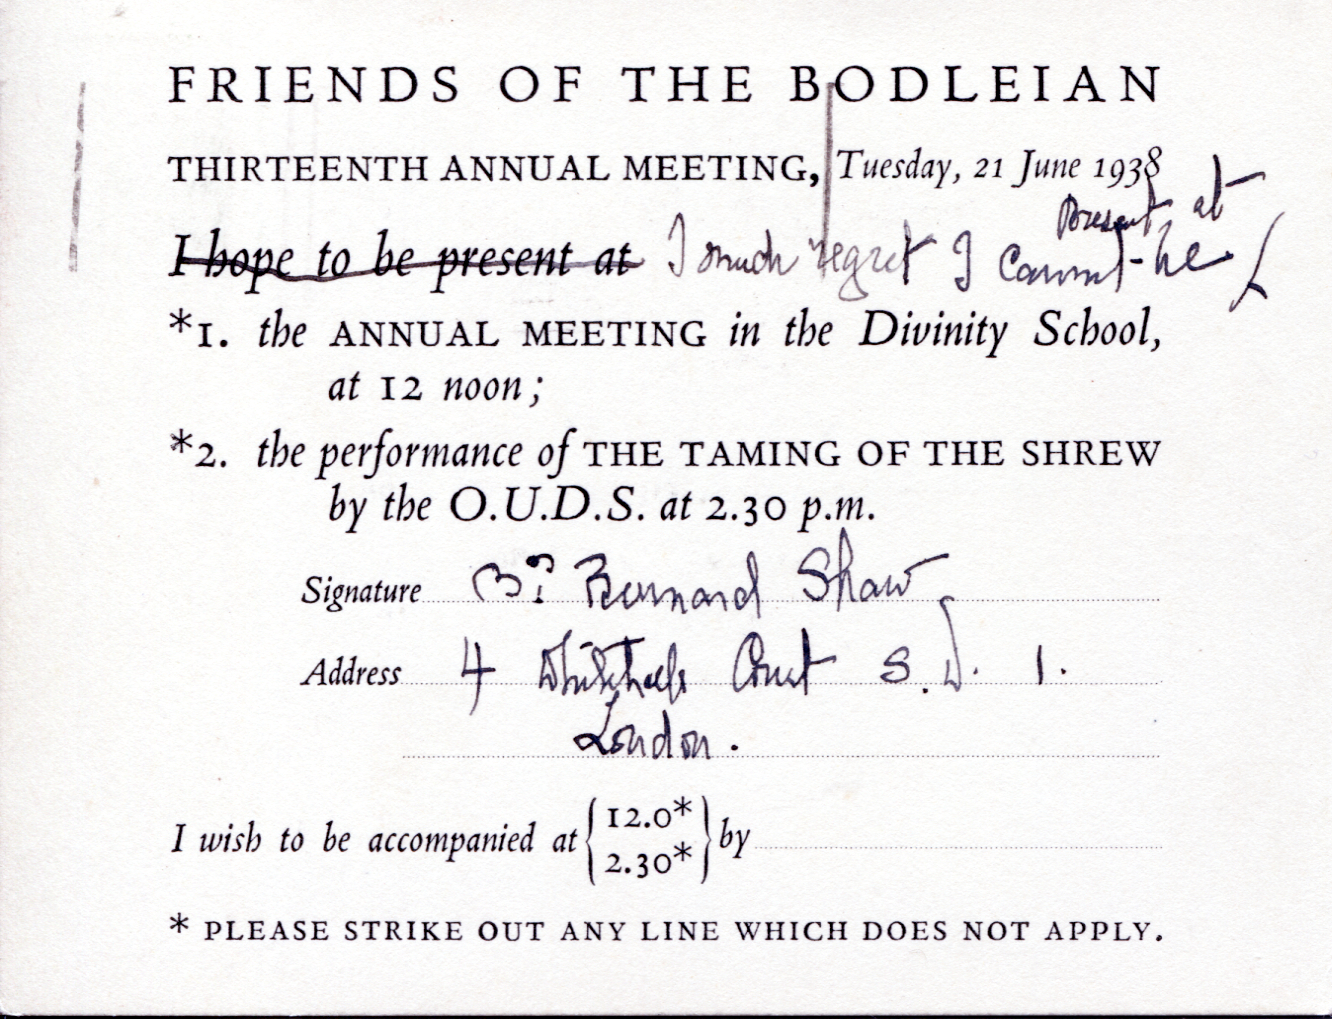 FRIENDS OF THE BODLEIAN
THIRTEENTH ANNUAL MEETING, Tuesday, 21 June 1938
I hope to be present at I much regret I cannot be present at
*1. the ANNUAL MEETING in the Divinity School,
at 12 noon;
*2. the performance of THE TAMING OF THE SHREW
by the O.U.D.S. at 2.30 p.m.
Signature Mrs Bernard Shaw
Address 4 Whitehall Court S.W. 1.
London.
I wish to be accompanied at {12.0* 2.30*} by
* PLEASE STRIKE OUT ANY LINE WHICH DOES NOT APPLY.